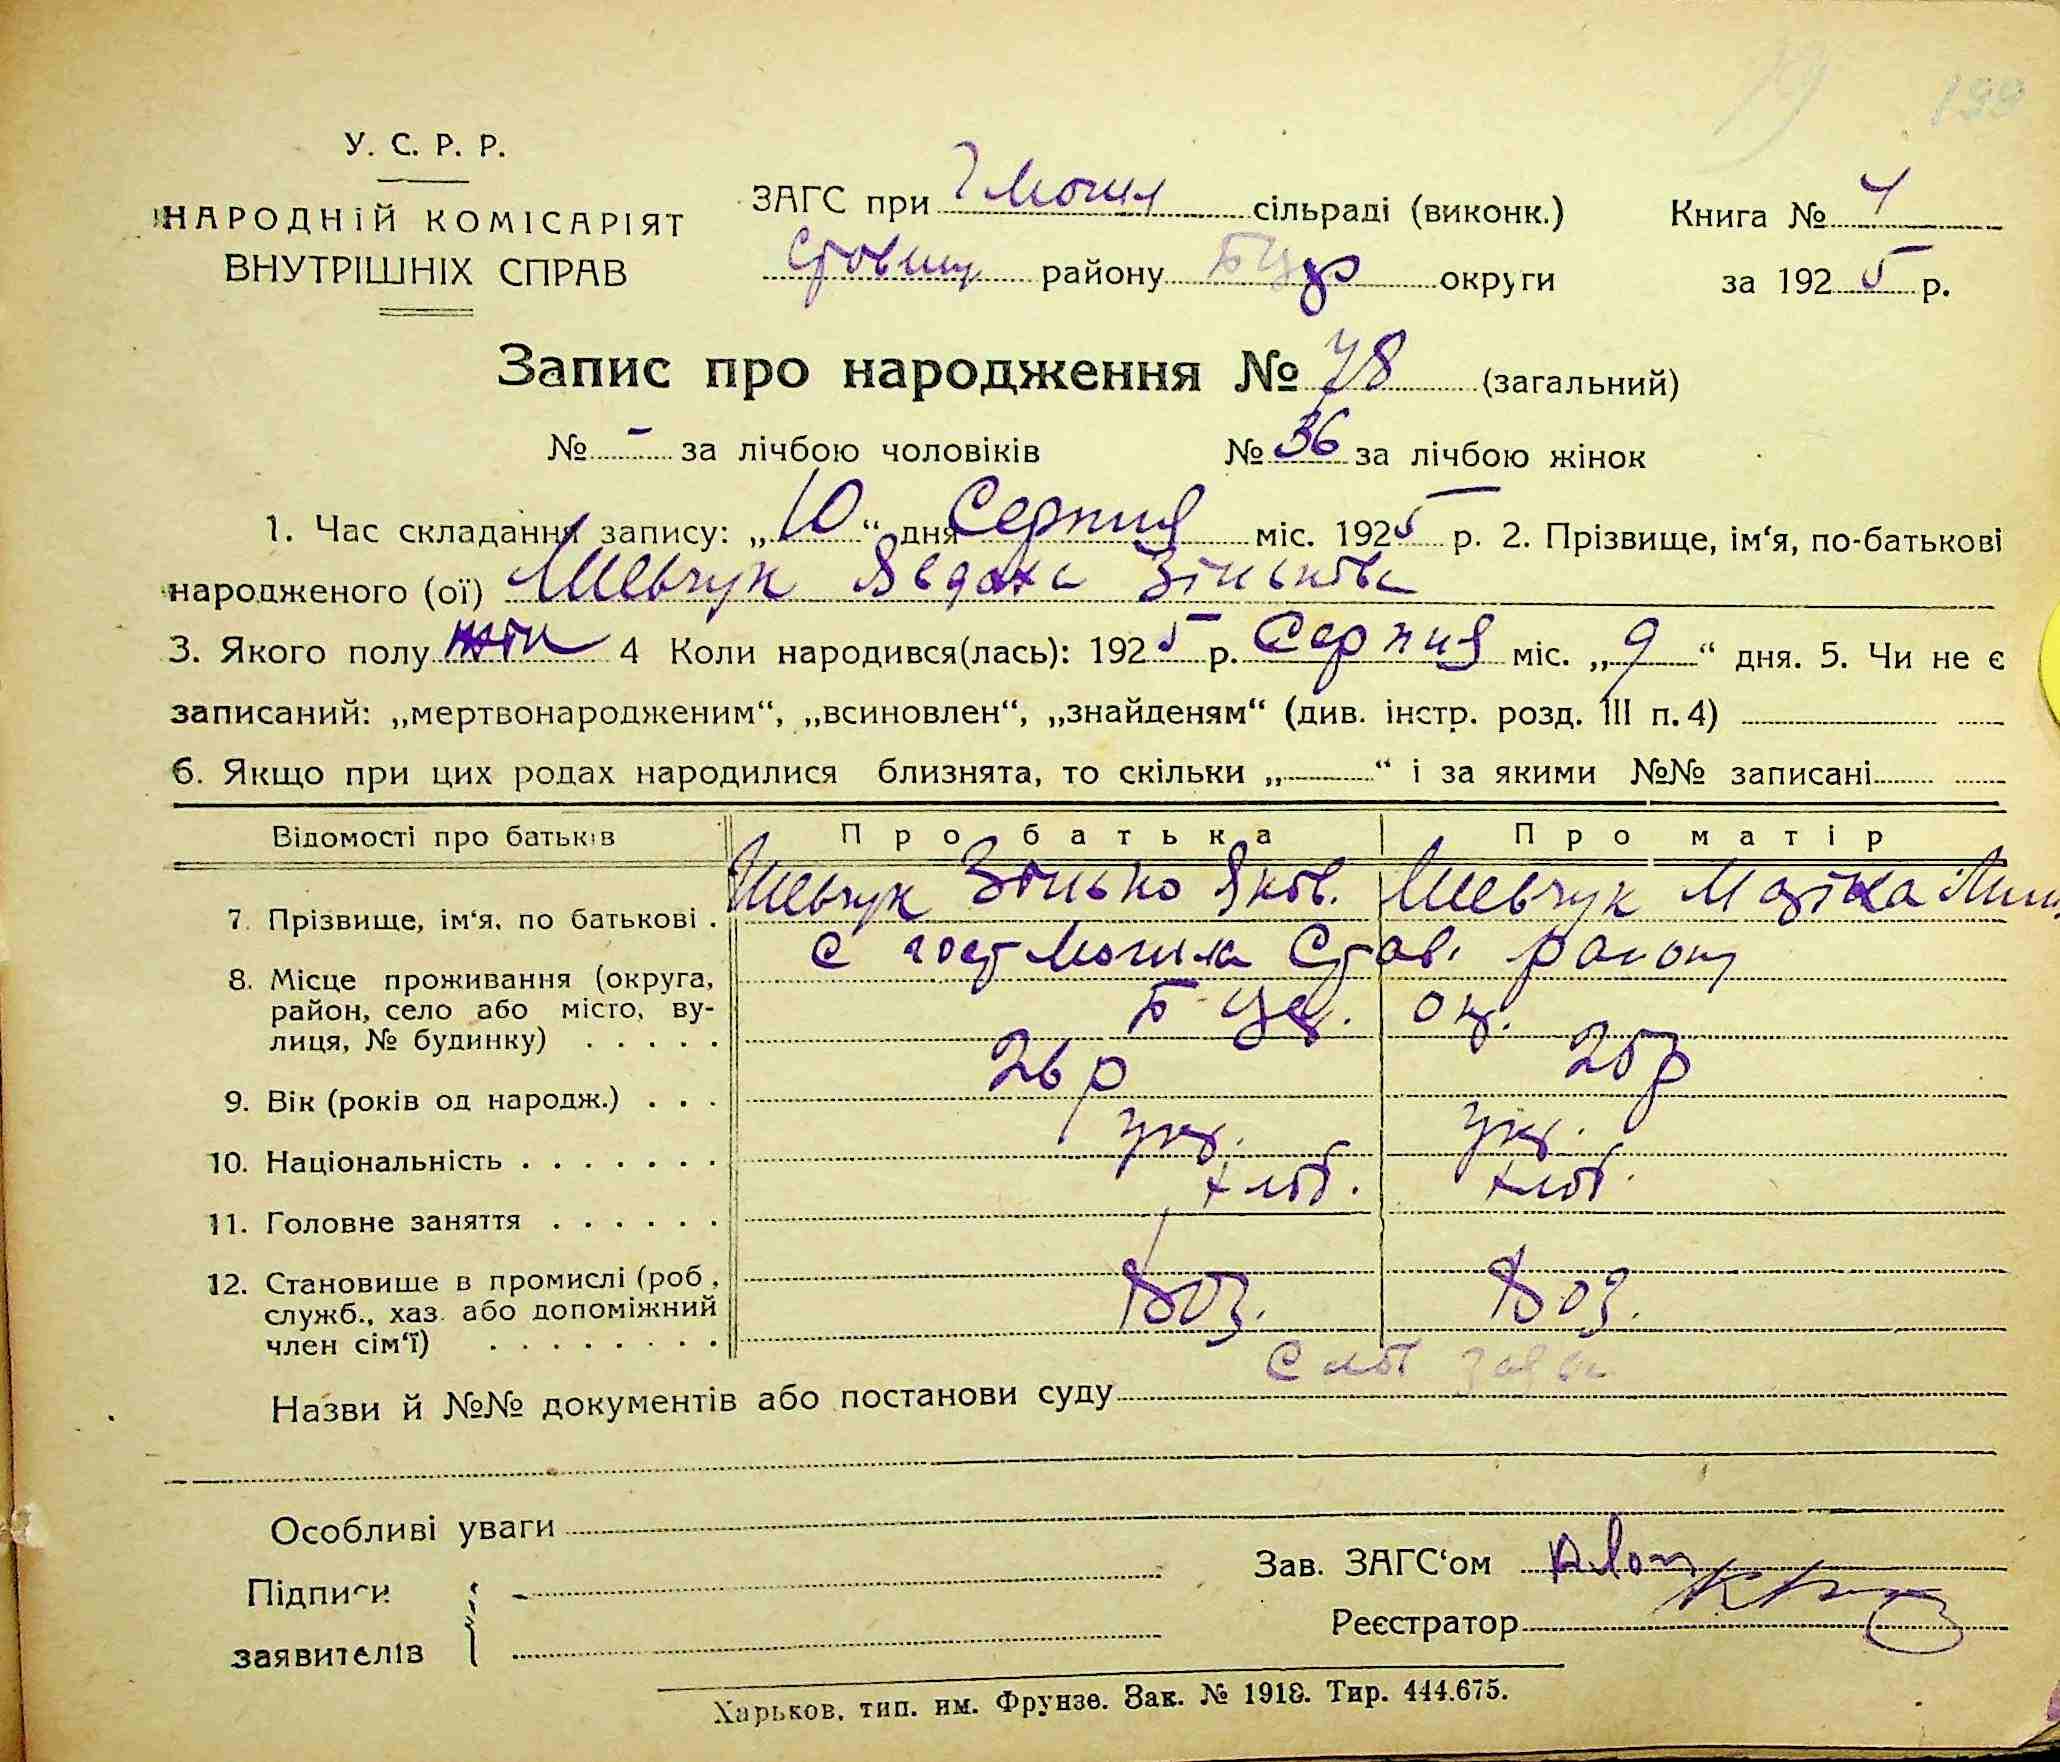 199
У. С. Р. Р.
НАРОДНІЙ КОМІСАРІЯТ
ВНУТРІШНІХ СПРАВ
ЗАГС при Г Могил сільраді (виконк.) Книга № 4
району БЦер округи за 1925 р.
Запис про народження № 78 (загальний)
№ - за лічбою чоловіків № 36 за лічбою жінок
1. Час складання запису: „10“ дня Серпня міс. 1925 р. 2. Прізвище, ім‘я, по-батькові
народженого (ої) Шевчук Явдоха Зінькова
3. Якого полу жін 4 Коли народився(лась): 1925 р. Серпня міс. „9“ дня. 5. Чи не є
записаний: „мертвонародженим“, „всиновлен“, „знайденям“ (див. інстр. розд. III п. 4)
6. Якщо при цих родах народилися близнята, то скільки „—“ і за якими №№ записані
Відомості про батьків Про батька Про матір
7. Прізвище, ім‘я, по батькові . Шевчук Зінько Яков. Шевчук
8. Місце проживання (округа, район, село або місто, вулиця, № будинку) . . . . . с Гост Могила Став. району
Б Цер. ок.
9. Вік (років од народж.) . . . 26 р 25 р
10. Національність . . . . . . . укр. укр.
11. Головне заняття . . . . . . хліб. хліб.
12. Становище в промислі (роб., служб., хаз. або допоміжний член сім‘ї) . . . . . . . .
Назви й №№ документів або постанови суду
Особливі уваги
Підписи
заявителів
Зав. ЗАГС‘ом
Реєстратор
Харьков, тип. им. Фрунзе. Зак. № 1918. Тир. 444.675.